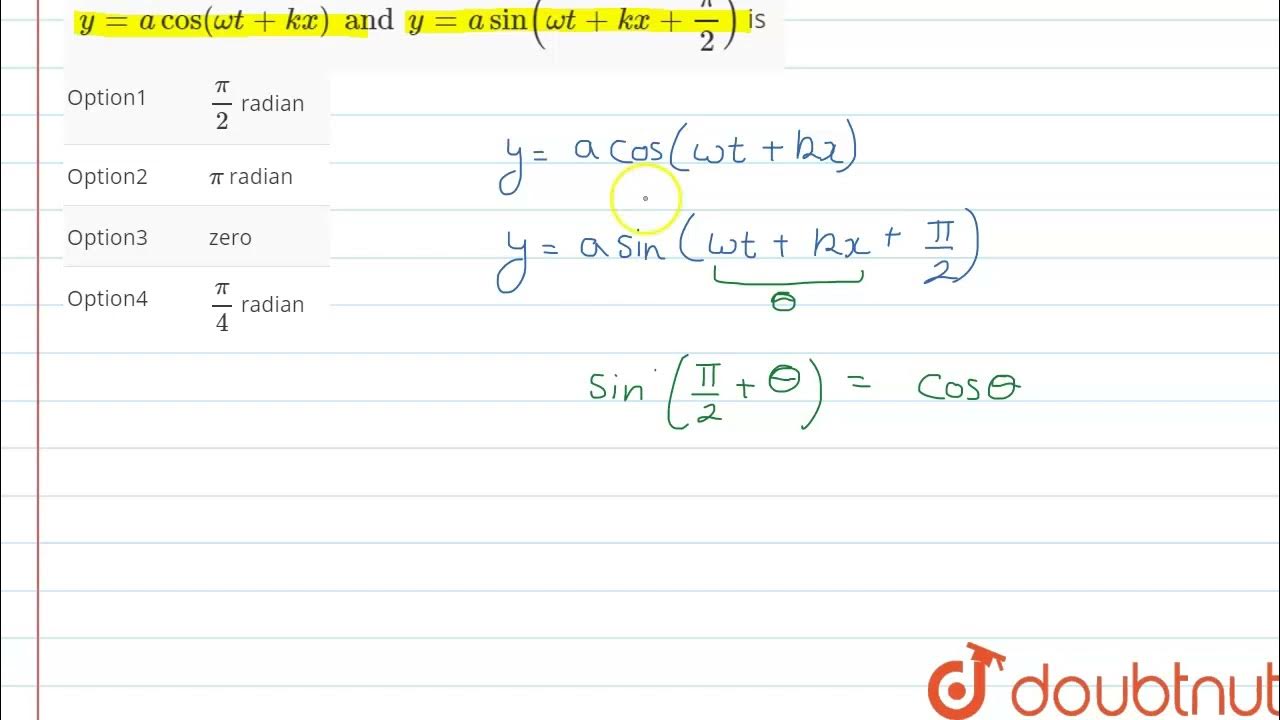 y = a cos(ωt + kx) and y = a sin(ωt + kx + π/2) is
Option1 π/2 radian
Option2 π radian
Option3 zero
Option4 π/4 radian
y = a cos(ωt + kx)
y = a sin(ωt + kx + π/2)
θ
sin(π/2 + θ) = cosθ
doubtnut